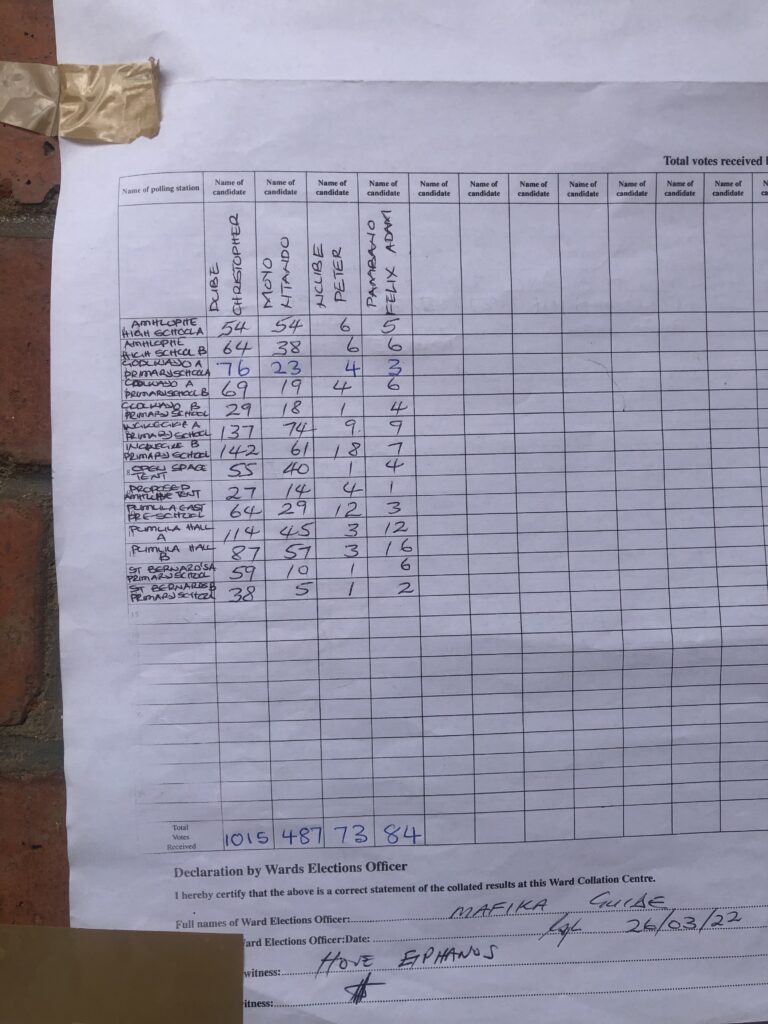 Total votes received
Name of polling station Name of candidate Name of candidate Name of candidate Name of candidate Name of candidate Name of candidate Name of candidate Name of candidate Name of candidate Name of candidate Name of candidate
DUBE CHRISTOPHER MOYO NTANDO NCUBE PETER PAMBANO FELIX ADAM
AMHLOPHE HIGH SCHOOL A 54 54 6 5
AMHLOPHE HIGH SCHOOL B 64 38 6 6
GODLWAYO A PRIMARY SCHOOL A 76 23 4 3
GODLWAYO A PRIMARY SCHOOL B 69 19 4 6
GODLWAYO B PRIMARY SCHOOL 29 18 1 4
A PRIMARY SCHOOL 137 74 9 9
B PRIMARY SCHOOL 142 61 18 7
OPEN SPACE TENT 55 40 1 4
PROPOSED TENT 27 14 4 1
PUMULA EAST PRE-SCHOOL 64 29 12 3
PUMULA HALL A 114 45 3 12
PUMULA HALL B 87 57 3 16
ST BERNARD'S A PRIMARY SCHOOL 59 10 1 6
ST BERNARDS B PRIMARY SCHOOL 38 5 1 2
15
Total Votes Received 1015 487 73 84
Declaration by Wards Elections Officer
I hereby certify that the above is a correct statement of the collated results at this Ward Collation Centre.
Full names of Ward Elections Officer: MAFIKA
ard Elections Officer:Date: 26/03/22
witness: HOVE EPHANOS
itness: